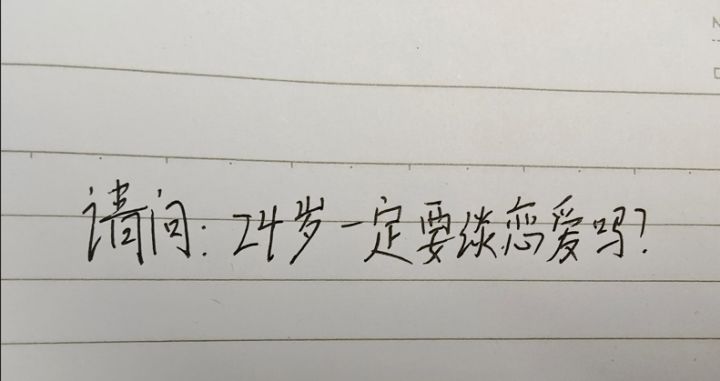 请问: 24岁一定要谈恋爱吗?